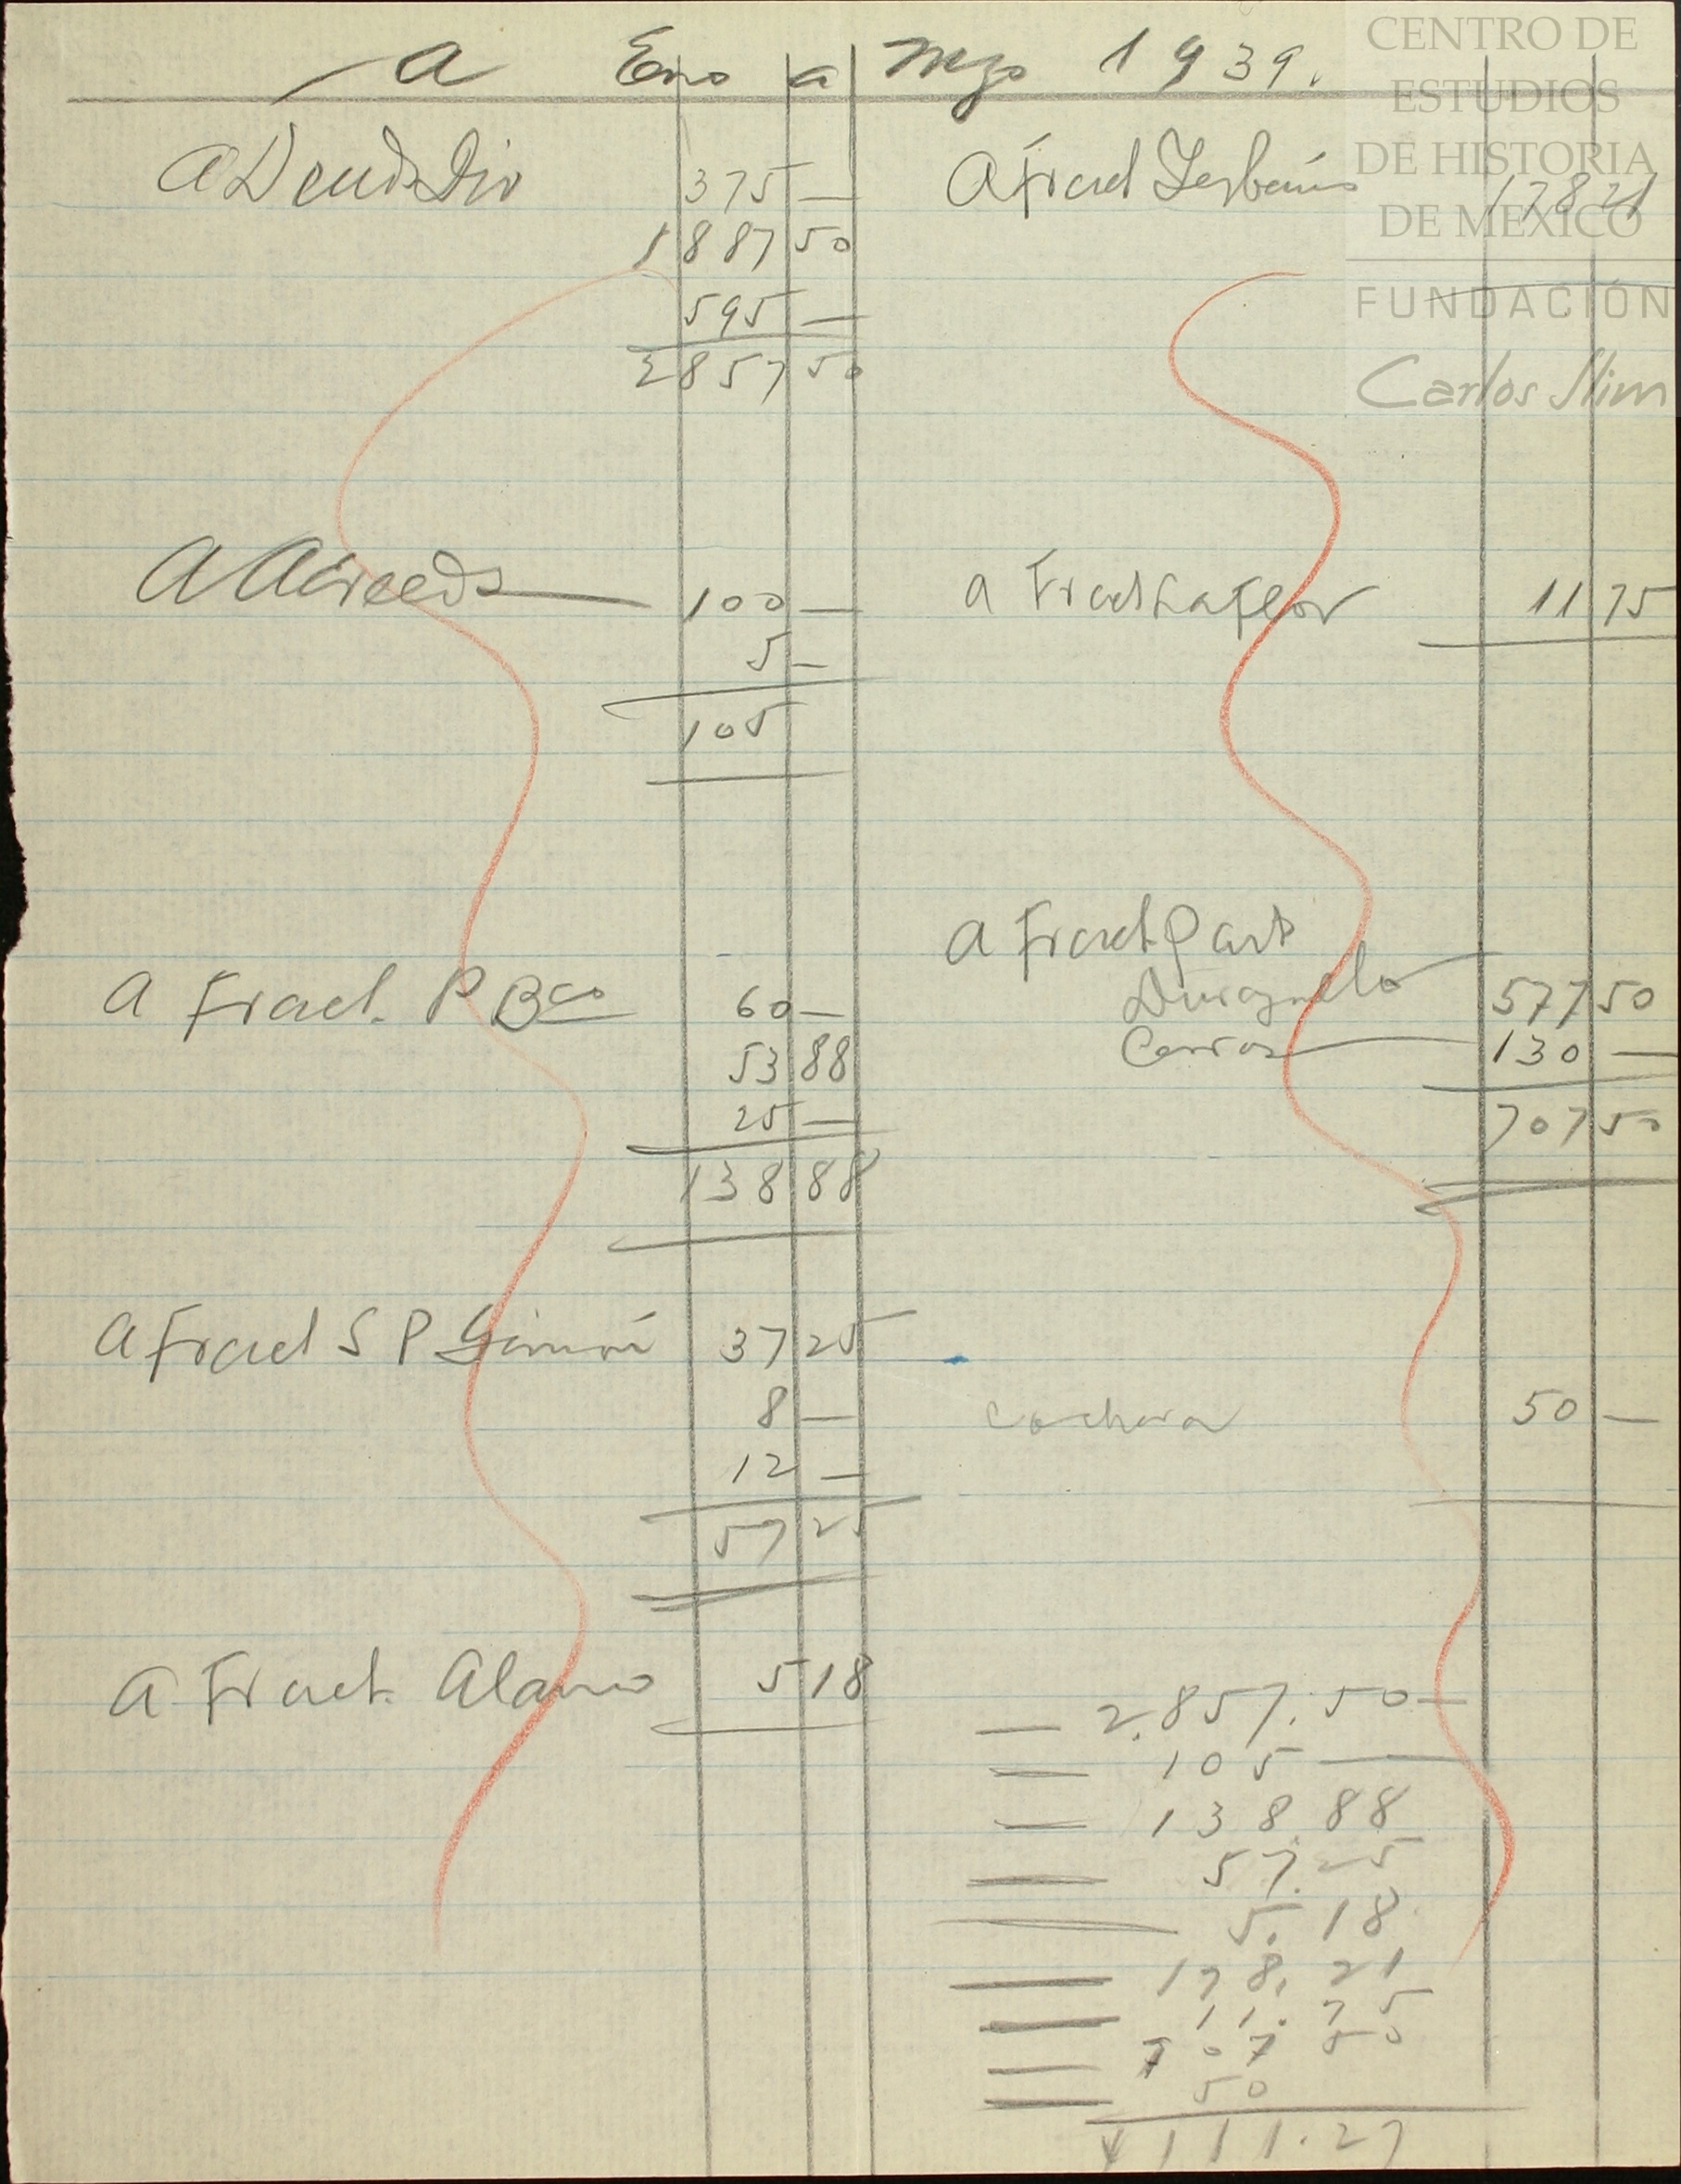 a Eno a Mzo 1939.
A Deuds Div 375 —
1887 50
595 —
2857 50
A Acreeds 100 —
5 —
105
A Fracc. P Bco 60 —
53 88
25 —
138 88
A Fracc S P 37 25
8 —
12 —
57 25
A Fracc. Alamo 5 18
A Fracc 178 21
a Fracc La Flor 11 75
a Fracc Part
577 50
Cerros 130 —
707 50
Cochera 50 —
— 2.857.50 —
— 105 —
— 138.88
— 57.25
— 5.18
— 178.21
— 11.75
— 707 50
— 50
4111.27
CENTRO DE
ESTUDIOS
DE HISTORIA
DE MEXICO
FUNDACIÓN
Carlos Slim